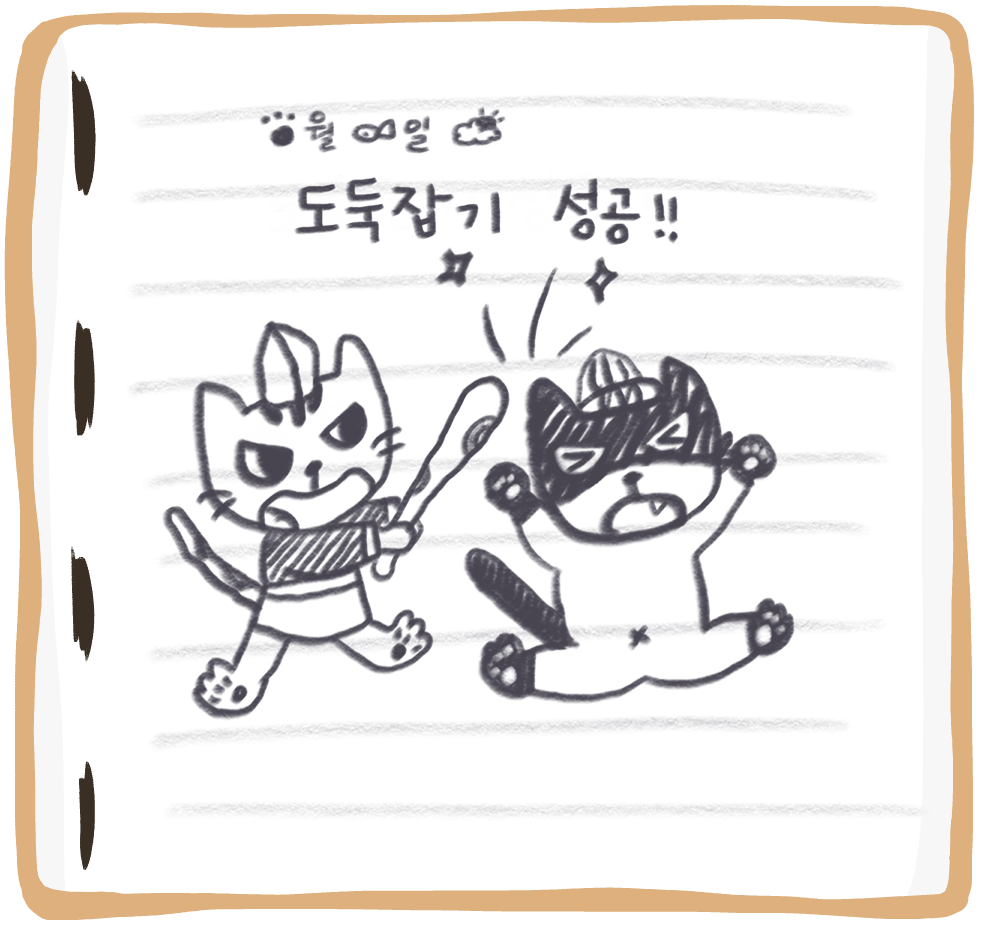 월 일
도둑잡기 성공!!